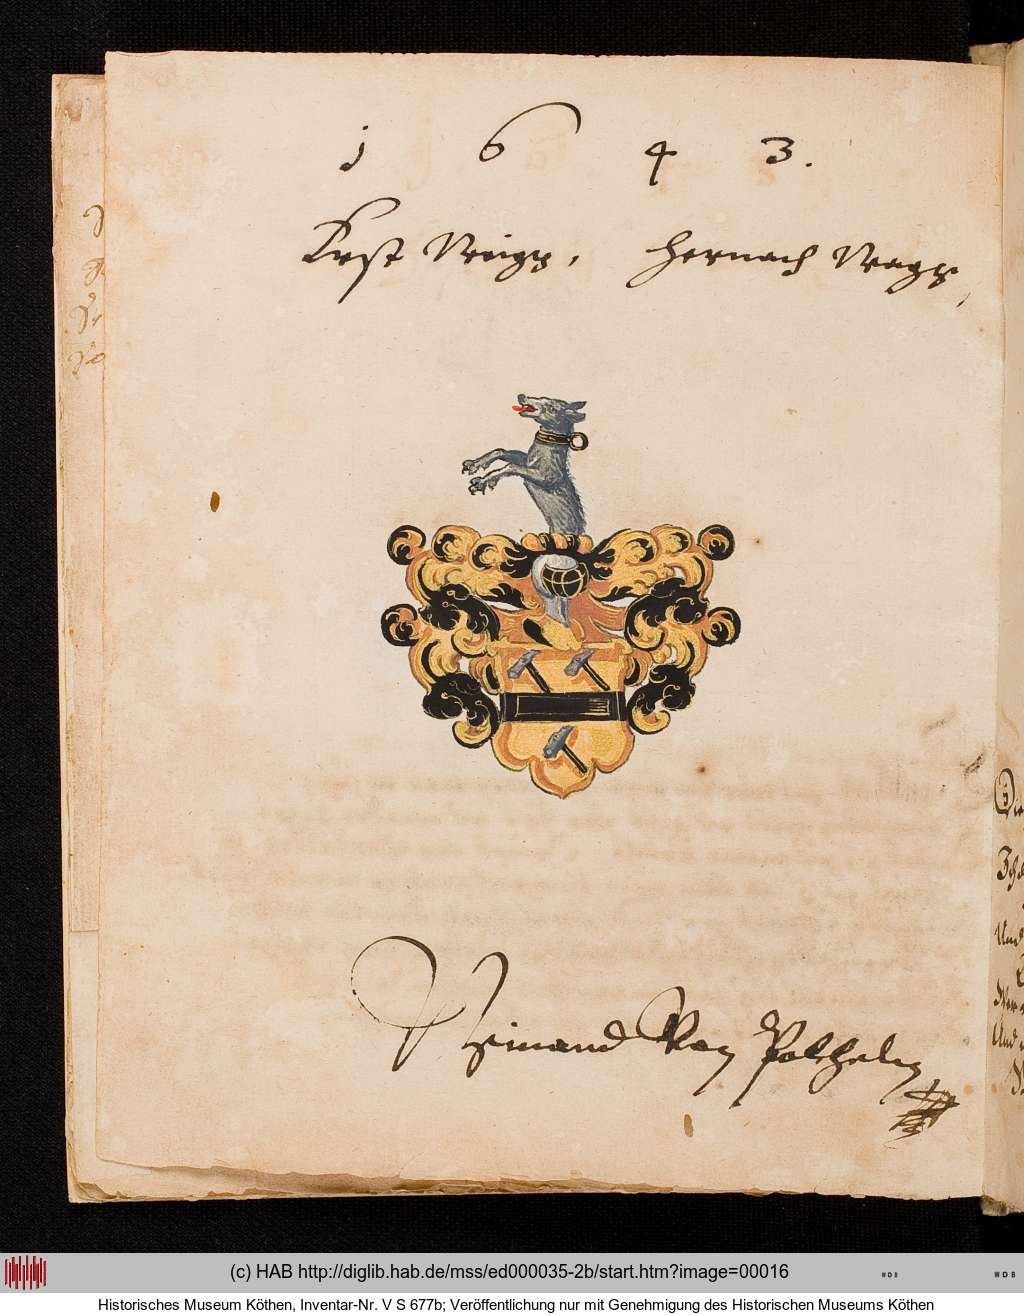 1 6 4 3.
Erst Weigs, hernach Wags,
Weinand Von Polhelm
(c) HAB http://diglib.hab.de/mss/ed000035-2b/start.htm?image=00016
WDB
WDB
Historisches Museum Köthen, Inventar-Nr. V S 677b; Veröffentlichung nur mit Genehmigung des Historischen Museums Köthen